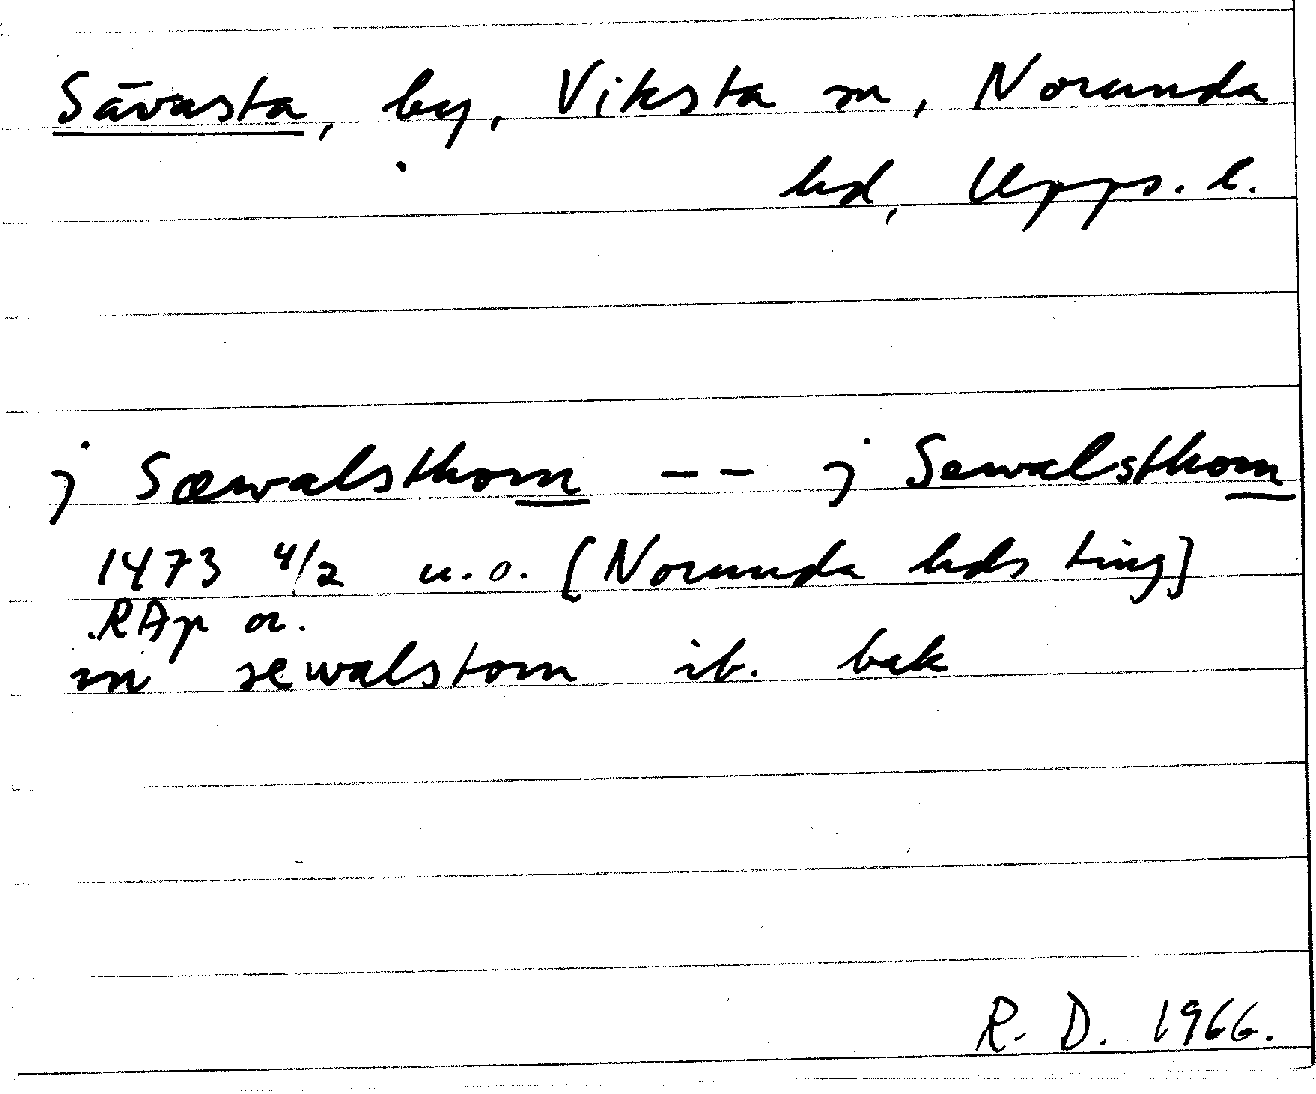 Sävasta, by, Viksta sn, Norunda
hd, Upps. l.
j Sæwalsthom -- j Sewalsthom
1473 4/2 u.o. (Norunda hds ting)
RAp or.
in sewalstom ib. bak
R. D. 1966.